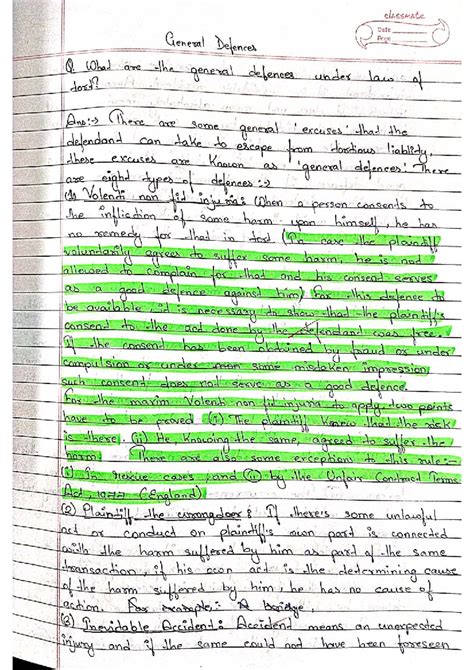 classmate
Date
Page
General Defences
Q What are the general defences under law of
tort?
Ans:-> There are some general 'excuses' that the
defendant can take to escape from tortious liablity.
these excuses are Known as 'general defences'. There
are eight types of defences :->
(1) Volenti non fit injuria: When a person consents to
the infliction of some harm upon himself, he has
no remedy for that in tort (In case the plaintiff
voluntarily agrees to suffer some harm, he is not
allowed to complain for that and his consent serves
as a good defence against him) For this defence to
be available it is necessary to show that the plaintiff's
consent to the act done by the defendant was free.
If the consent has been obtained by fraud or under
compulsion or under some mistaken impression,
such consent does not serve as a good defence.
For the maxim Volenti non fit injuria to apply two points
have to be proved (i) The plaintiff Know that the risk
is there. (ii) He Knowing the same, agreed to suffer the
harm. There are also some exceptions to this rule:-
(i) In rescue cases, and (ii) by the Unfair Contract Terms
Act, 1977 (England).
(2) Plaintiff, the wrongdoer: If there's some unlawful
act or conduct on plaintiff's own part is connected
with the harm suffered by him as part of the same
transaction, if his own act is the determining cause
of the harm suffered by him, he has no cause of
action. For example: A bridge,
(3) Inevitable Accident: Accident means an unexpected
injury and if the same could not have been foreseen